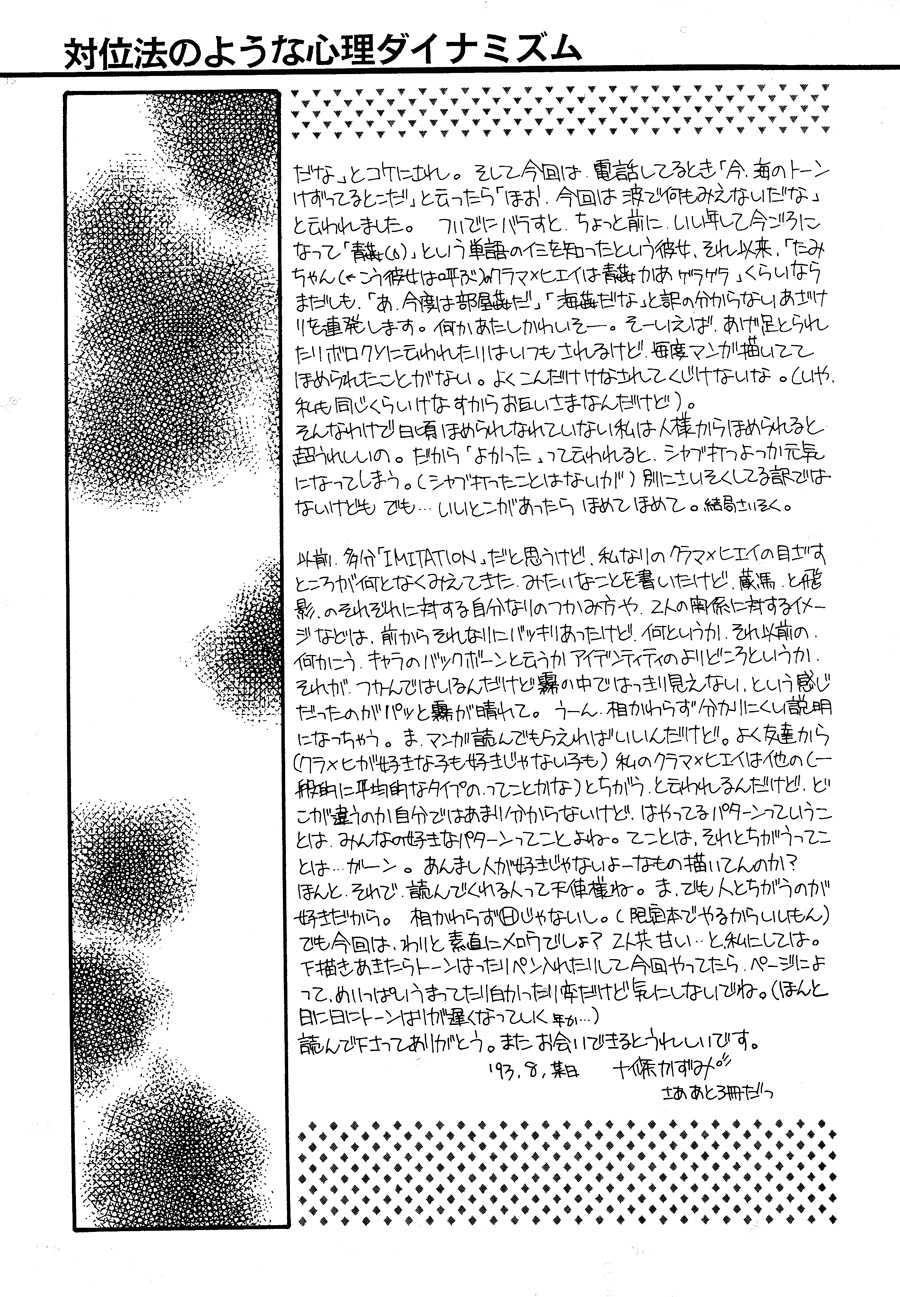 対位法のような心理ダイナミズム
だな」とコケにされ。そして今回は、電話してるとき「今、海のトーン
けずってるとこだ」と云ったら「ほお、今回は波で何もみえないだな」
と云われました。 ついでにバラすと、ちょっと前に、いい年して今ごろに
なって「青姦(a)」という単語のイミを知ったという彼女、それ以来、「たみ
ちゃん(←こう彼女は呼ぶ)のクラマ×ヒエイは青姦かあ ゲラゲラ」くらいなら
まだしも、「あ、今度は部屋姦だ」「海姦だな」と訳の分からないあざけ
りを連発します。何かあたしかわいそー。そーいえば、あげ足とられ
たりボロクソに云われたりはいつもされるけど、毎度マンガ描いてて
ほめられたことがない。よくこんだけけなされてくじけないな。(いや、
私も同じくらいけなすからお互いさまなんだけど)。
そんなわけで日頃ほめられなれていない私は人様からほめられると
超うれしいの。だから「よかった」って云われると、シャブ打つよっか元気
になってしまう。(シャブ打ったことはないが)別にさいそくしてる訳では
ないけども でも…いいとこがあったら ほめて ほめて。結局さいそく。
以前、多分「IMITATION」だと思うけど、私なりのクラマ×ヒエイの目ざす
ところが何となくみえてきた、みたいなことを書いたけど、蔵馬、と飛
影、のそれぞれに対する自分なりのつかみ方や、2人の関係に対するイメー
ジなどは、前からそれなりにバッキリあったけど、何というか、それ以前の、
何かこう、キャラのバックボーンと云うかアイデンティティのよりどころというか、
それが、つかんではいるんだけど霧の中ではっきり見えない、という感じ
だったのがパッと霧が晴れて。うーん、相かわらず分かりにくい説明
になっちゃう。ま、マンガ読んでもらえればいいんだけど。よく友達から
(クラ×ヒが好きな子も好きじゃない子も)私のクラマ×ヒエイは他の(一
般的に平均的なタイプの、ってことかな)とちがう、と云われるんだけど、ど
こが違うのか自分ではあまり分からないけど、はやってるパターンっていうこ
とは、みんなの好きなパターンってことよね。てことは、それとちがうってこ
とは…ガーン。あんまし人が好きじゃないよーなもの描いてんのか?
ほんと、それで、読んでくれる人って天使様ね。ま、でも人とちがうのが
好きだから。 相かわらずⒽじゃないし。(限定本でやるからいいもん)
でも今回は、わりと素直にメロウでしょ? 2人共甘い…と、私にしては。
下描きあきたらトーンはったりペン入れたりして今回やってたら、ページによ
って、めいっぱいうまってたり白かったり変だけど気にしないでね。(ほんと
日に日にトーンはりが遅くなっていく 年か…)
読んで下さってありがとう。またお会いできるとうれしいです。
'93.8.某日 十條かずみ
さああと3冊だっ